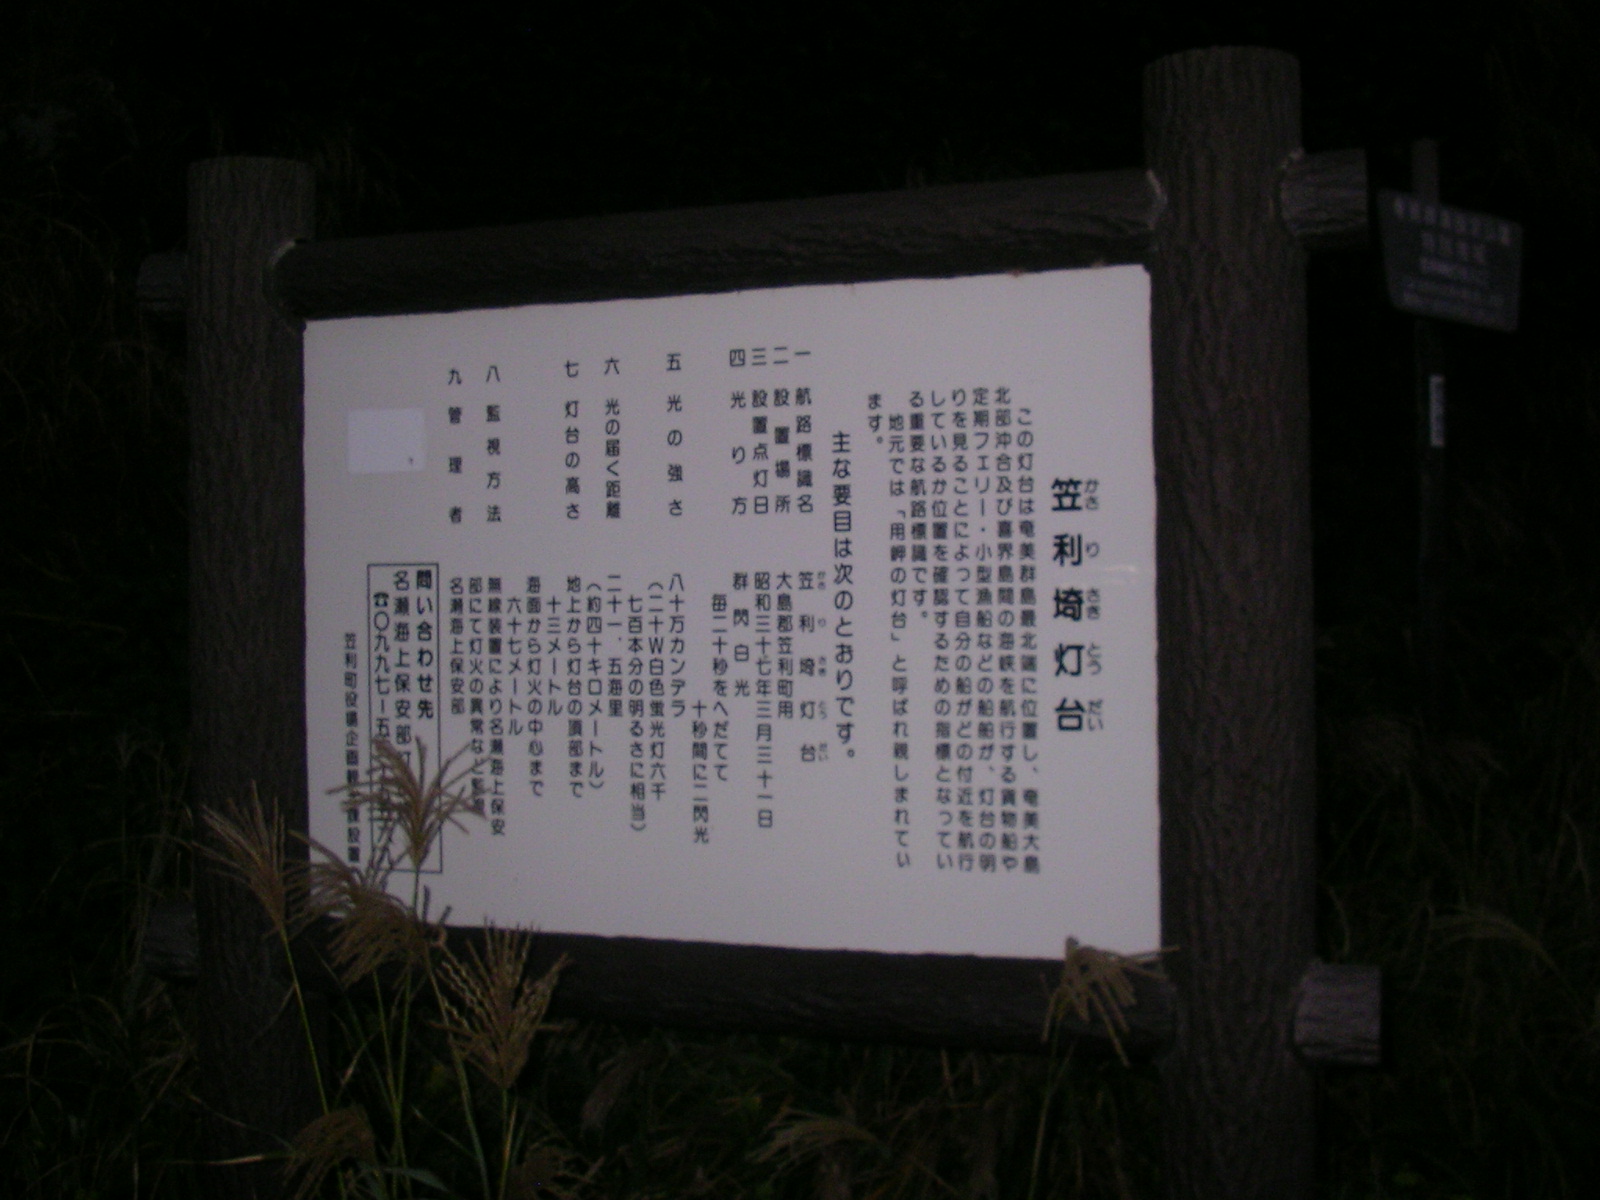 笠利埼灯台
かさりさきとうだい
この灯台は奄美群島最北端に位置し、奄美大島
北部沖合及び喜界島間の海峡を航行する貨物船や
定期フェリー・小型漁船などの船舶が、灯台の明
りを見ることによって自分の船がどの付近を航行
しているか位置を確認するための指標となってい
る重要な航路標識です。
地元では「用岬の灯台」と呼ばれ親しまれてい
ます。
主な要目は次のとおりです。
一 航路標識名 笠利埼灯台
かさりさきとうだい
二 設置場所 大島郡笠利町用
三 設置点灯日 昭和三十七年三月三十一日
四 光り方 群閃白光
毎二十秒をへだてて
十秒間に二閃光
五 光の強さ 八十万カンデラ
(二十W白色蛍光灯六千
七百本分の明るさに相当)
六 光の届く距離 二十一、五海里
(約四十キロメートル)
七 灯台の高さ 地上から灯台の頂部まで
十三メートル
海面から灯火の中心まで
六十七メートル
八 監視方法 無線装置により名瀬海上保安
部にて灯火の異常など監視
九 管理者 名瀬海上保安部
問い合わせ先
名瀬海上保安部灯
☎〇九九七ー五
笠利町役場企画観光課設置